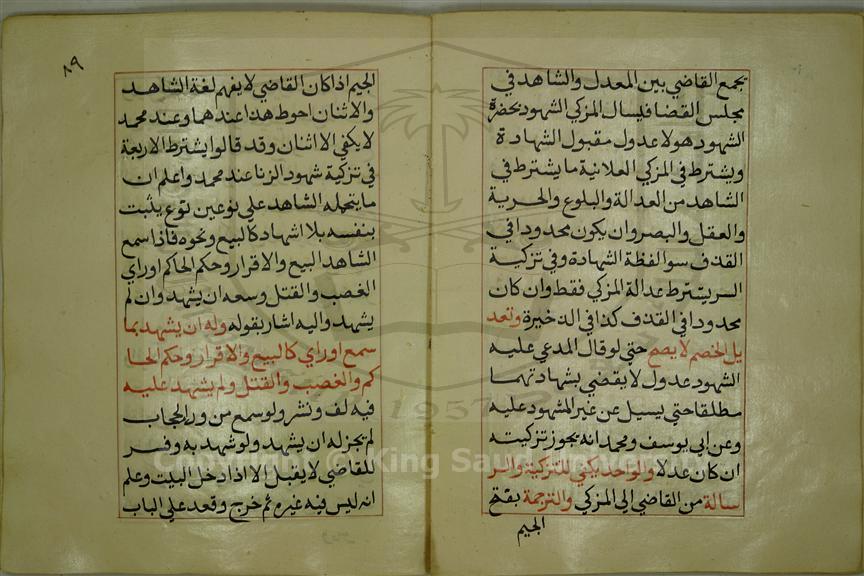 يجمع القاضي بين المعدل والشاهد في
مجلس القضا فيسال المزكي الشهود بحضرة
الشهود هولا عدول مقبول الشهادة
ويشترط في المزكي العلانية ما يشترط في
الشاهد من العدالة والبلوغ والحرية
والعقل والبصر وان يكون محدودا في
القذف سوا لفظة الشهادة وفي تزكية
السر يشترط عدالة المزكي فقط وان كان
محدودا في القذف كذا في الذخيرة وتعد
يل الخصم لا يصح حتي لو قال المدعي عليه
الشهود عدول لا يقضي بشهادتهما
مطلقا حتي يسيل عن غير المشهود عليه
وعن ابي يوسف ومحمد انه يجوز تزكيته
ان كان عدلا والواحد يكفي للتزكية والر
سالة من القاضي الي المزكي والترجمة بفتح
الجيم
٨٩
الجيم اذا كان القاضي لا يفهم لغة الشاهد
والاثنان احوط هذا عندهما وعند محمد
لا يكفي الا اثنان وقد قالوا يشترط الاربعة
في تزكية شهود الزنا عند محمد واعلم ان
ما يتحمله الشاهد علي نوعين نوع يثبت
بنفسه بلا اشهاد كالبيع ونحوه فاذا سمع
الشاهد البيع والاقرار وحكم الحاكم او راي
الغصب والقتل وسعه ان يشهد وان لم
يشهد واليه اشار بقوله وله ان يشهد بما
سمع او راي كالبيع والاقرار وحكم الحا
كم والغصب والقتل ولم يشهد عليه
فيه لف ونشر ولو سمع من ورا الحجاب
لم يجز له ان يشهد ولو شهد به وفسر
للقاضي لا يقبل الا اذا دخل البيت وعلم
انه ليس فيه غيره ثم خرج وقعد علي الباب
1957
Copyright © King Saud University